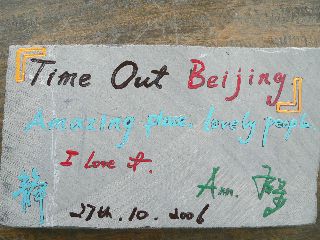 Time Out Beijing
Amazing place. Lovely people
I love it.
Ann.
27th. 10. 2006